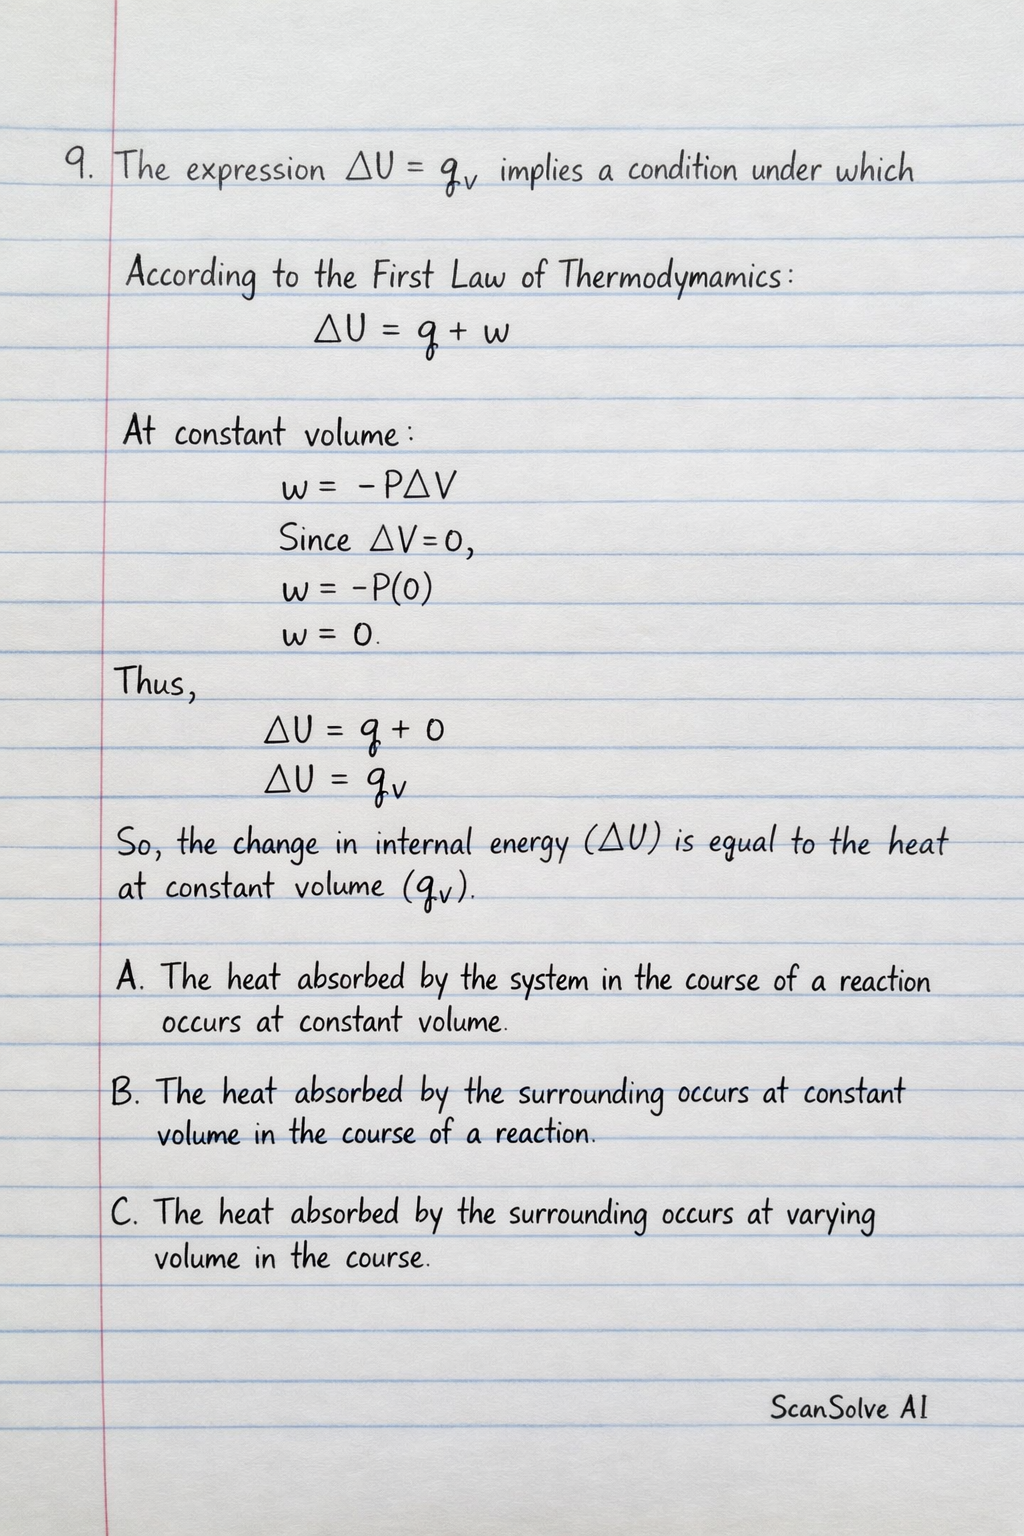 9. The expression ΔU = qᵥ implies a condition under which
According to the First Law of Thermodymamics:
ΔU = q + w
At constant volume:
w = -PΔV
Since ΔV=0,
w = -P(0)
w = 0.
Thus,
ΔU = q + 0
ΔU = qᵥ
So, the change in internal energy (ΔU) is equal to the heat
at constant volume (qᵥ).
A. The heat absorbed by the system in the course of a reaction
occurs at constant volume.
B. The heat absorbed by the surrounding occurs at constant
volume in the course of a reaction.
C. The heat absorbed by the surrounding occurs at varying
volume in the course.
ScanSolve AI